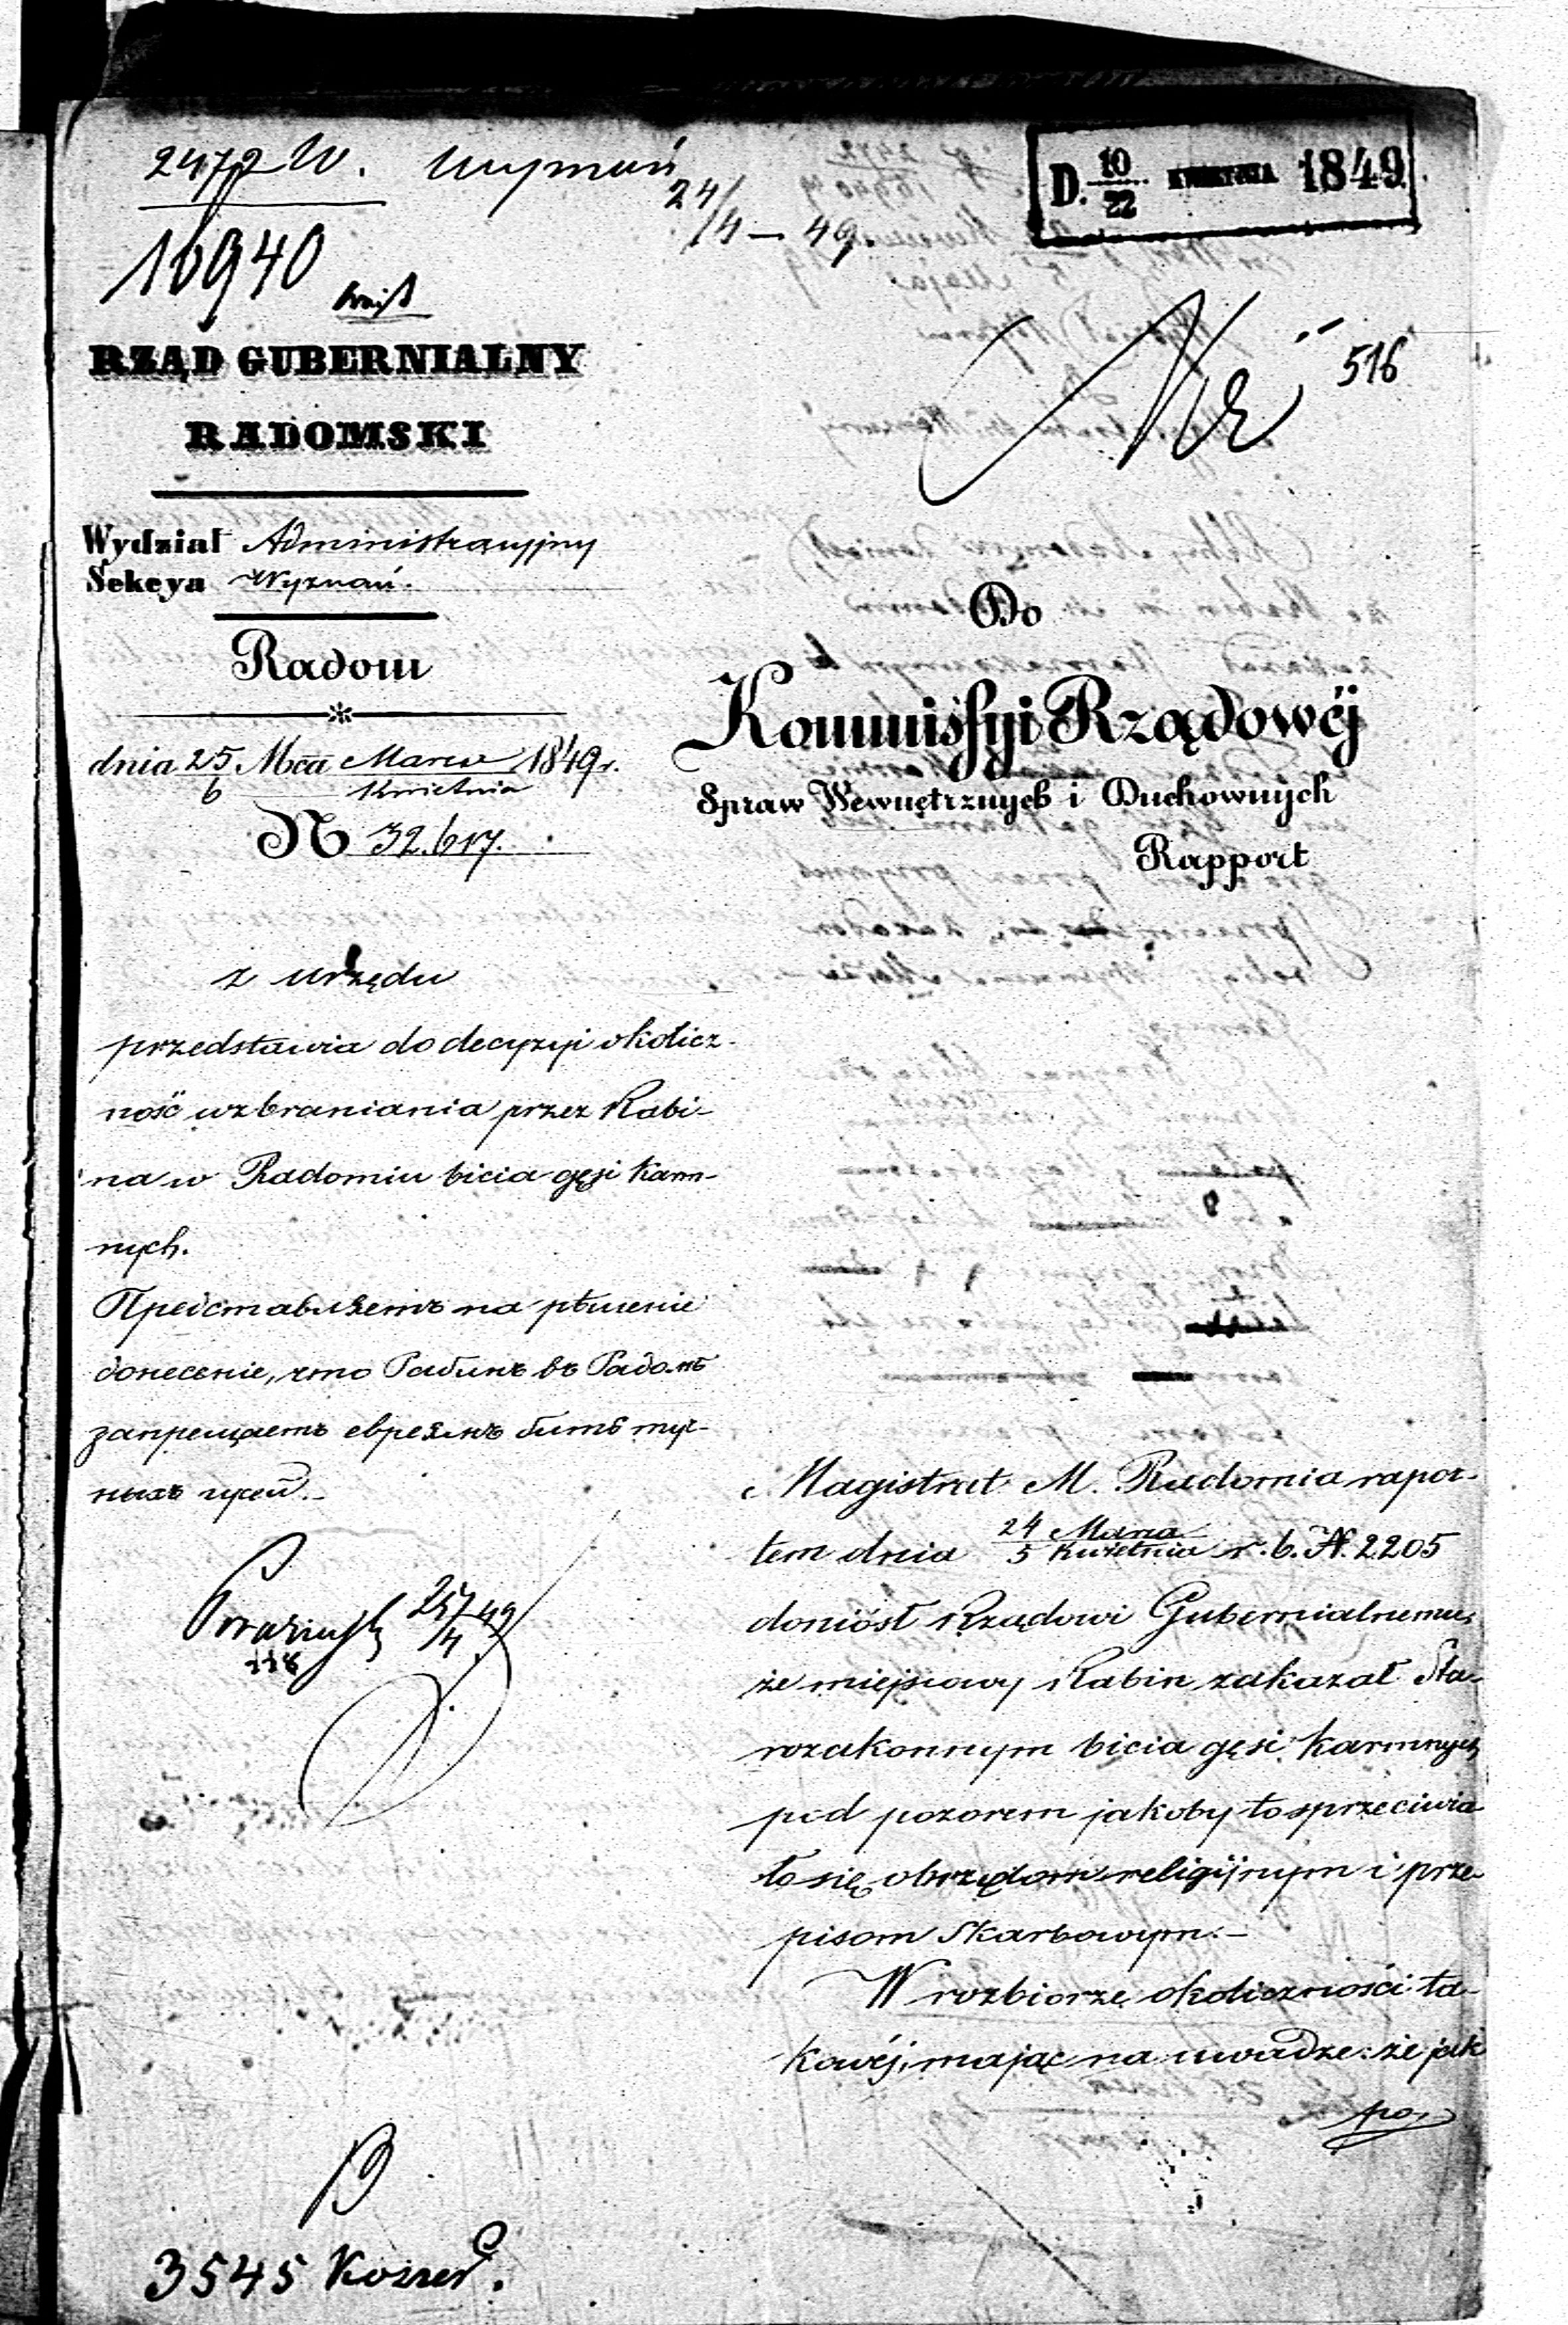 2472 W. Wyznań
24/4 — 49
D. 10/22 KWIETNIA 1849
16940
516
RZĄD GUBERNIALNY
RADOMSKI
Wydział Administracyjny
Sekcya Wyznań.
Radom
dnia 25/6 Mca Marca/Kwietnia 1849 r.
N 32.617.
Do
Kommissyi Rządowéj
Spraw Wewnętrznych i Duchownych
Rapport
z urzędu
przedstawia do decyzyi okolicz-
ność wzbraniania przez Rabi-
na w Radomiu bicia gęsi karm-
nych.
на рѣшение
донесение, что Рабинъ въ Радомѣ
запрещаетъ евреямъ бить туч-
ныхъ гусей.-
25/4 49
118
Magistrat M. Radomia rapor-
tem dnia 24 Marca/5 Kwietnia r. b. N. 2205
doniósł Rządowi Gubernialnemu,
że miejscowy Rabin zakazał Sta-
rozakonnym bicia gęsi karmnych
pod pozorem jakoby to sprzeciwia
ło się obrzędom religijnym i prze-
pisom Skarbowym.-
W rozbiorze okoliczności ta-
kowéj, mając na uwadze: że jak
po,
3545 Koszer.